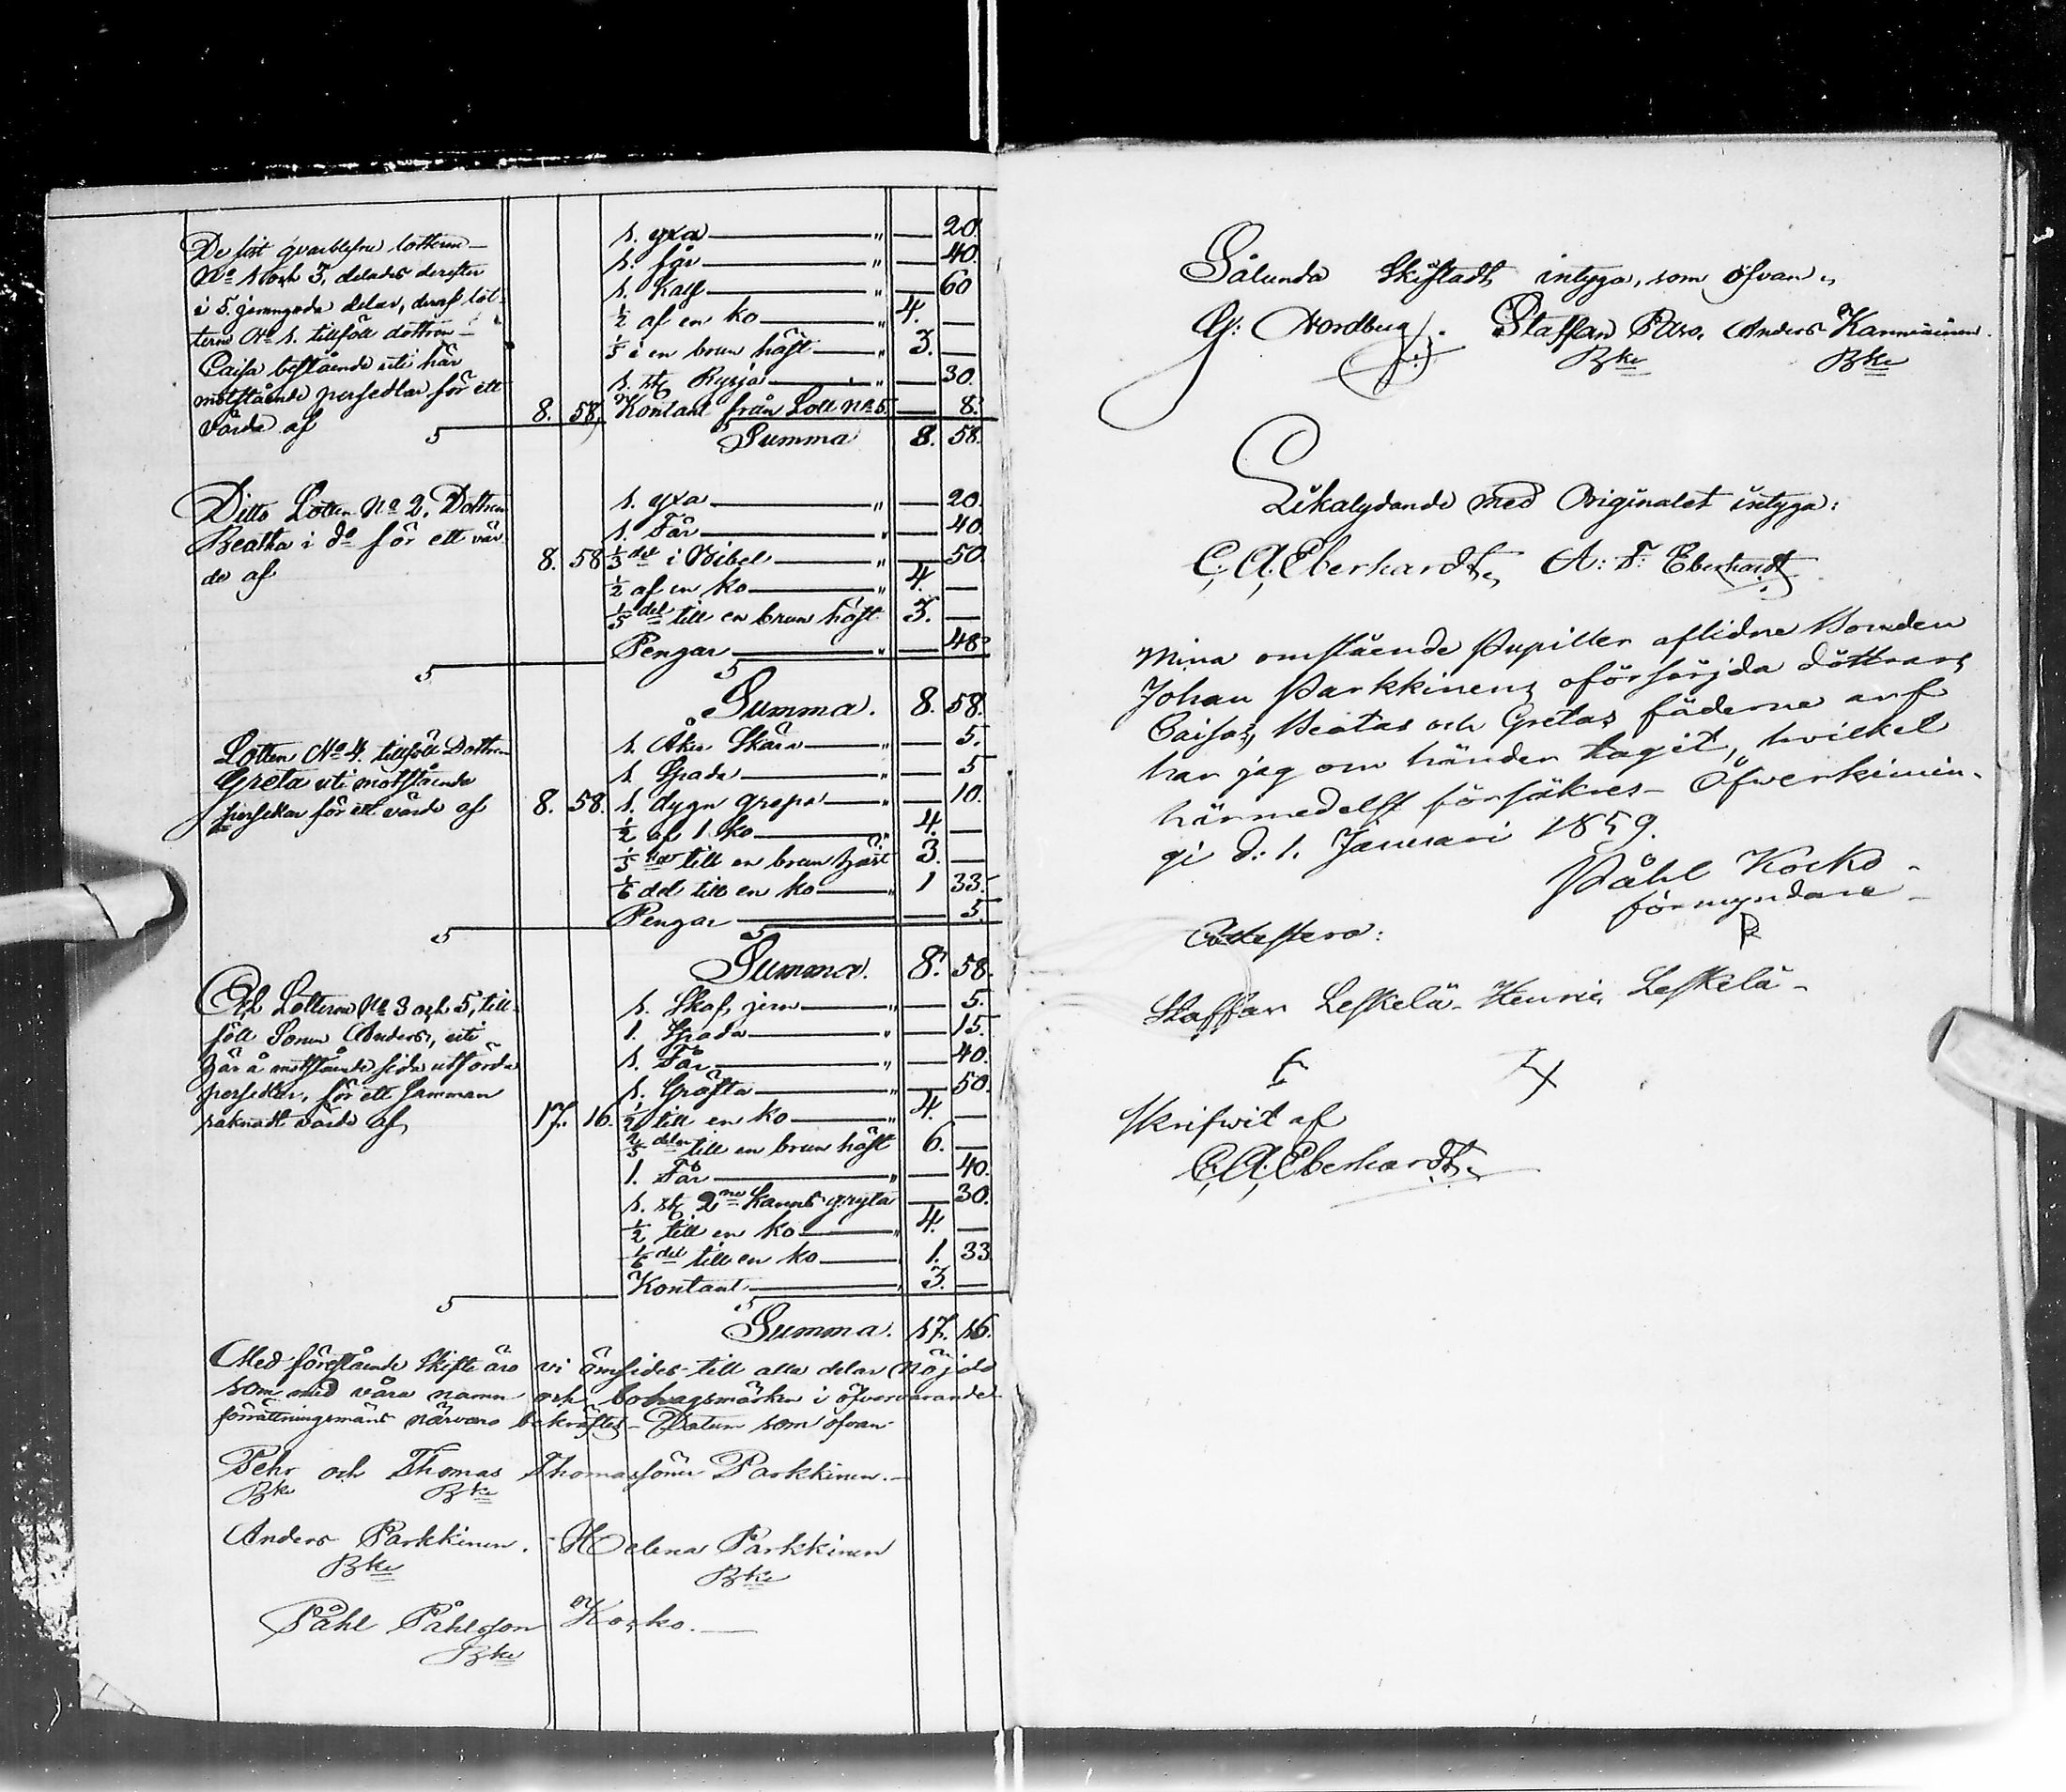 De sist qvarblefne lotterne
No 1 och 3, delades derefter
i 5. jemngoda delar, deraf lot-
tern No 1. tillföll dottren
Caisa bestående uti här
motstående persedlar för ett
värde af 8. 58.
1. yxa " — 20.
1. får " — 40.
1. Kalf " — 60
½ af en ko " 4. —
1/5 i en brun häst " 3. —
1. st. Rysja " — 30.
Kontant från Lott No 5. — 8.
Summa 8. 58.
Ditto Lotten No 2. Dottren
Beatta i do för ett vär-
de af 8. 58
1. yxa " — 20.
1. Får " — 40
1/3 del i Bibel " — 50.
½ af en ko " 4. —
1/5 del till en brun häst 3. —
Pengar " — 48
Summa. 8. 58.
Lotten No 4. tillföll Dottren
Greta uti motstående
persedlar för ett värde af 8. 58.
1. Åker Skära " — 5.
1. Spada " — 5
1. dyng grepa " — 10.
½ af 1 ko " 4. —
1/5 del till en brun häst 3. —
1/6 del till en ko " 1 33.
Pengar — 5.
Summa. 8. 58.
Och Lotterne No 3 och 5, till-
föll Sonen Anders, uti
här å motstående sida utförda
persedlar, för ett samman
räknadt värde af 17. 16.
1. Skaf jern " — 5.
1. Spada " — 15.
1. Får " — 40.
1. Gröfta " — 50.
½ till en ko " 4. —
2/5 delar till en brun häst 6. —
1. Får " — 40.
1. st. 2ne kanns gryta — 30.
½ till en ko " 4. —
1/6 del till en ko 1. 33
Kontant 3. —
Summa. 17. 16.
Med förestående Skifte äro vi ömsides till alla delar nöjde
som med våra namn och bomärken i öfvervarande
förrättningsmäns närvaro bekräftes – Datum som ofvan
Pehr och Thomas Thomassöner Parkkinen.
Bke Bke
Anders Parkkinen. Helena Parkkinen
Bke Bke
Påhl Påhlsson Korko.
Bke
Sålunda Skiftadt intyga, som ofvan
G: Nordberg. Staffan Paro. Anders Kanniainen.
Bke Bke
Likalydande med Originalet intyga:
C. A. Eberhardt, A: F: Eberhardt
Mina omstående Pupiller aflidne Bonden
Johan Parkkinens oförsörjda döttrars
Caisas, Beatas och Gretas fäderne arf
har jag om händer tagit, hvilket
härmedelst försäkres – Öfwerkimin-
gi d: 1. Januari 1859.
Påhl Korko
förmyndare
Attestera:
Staffan Leskelä – Henric Leskelä –
Skrifwit af
C. A. Eberhardt